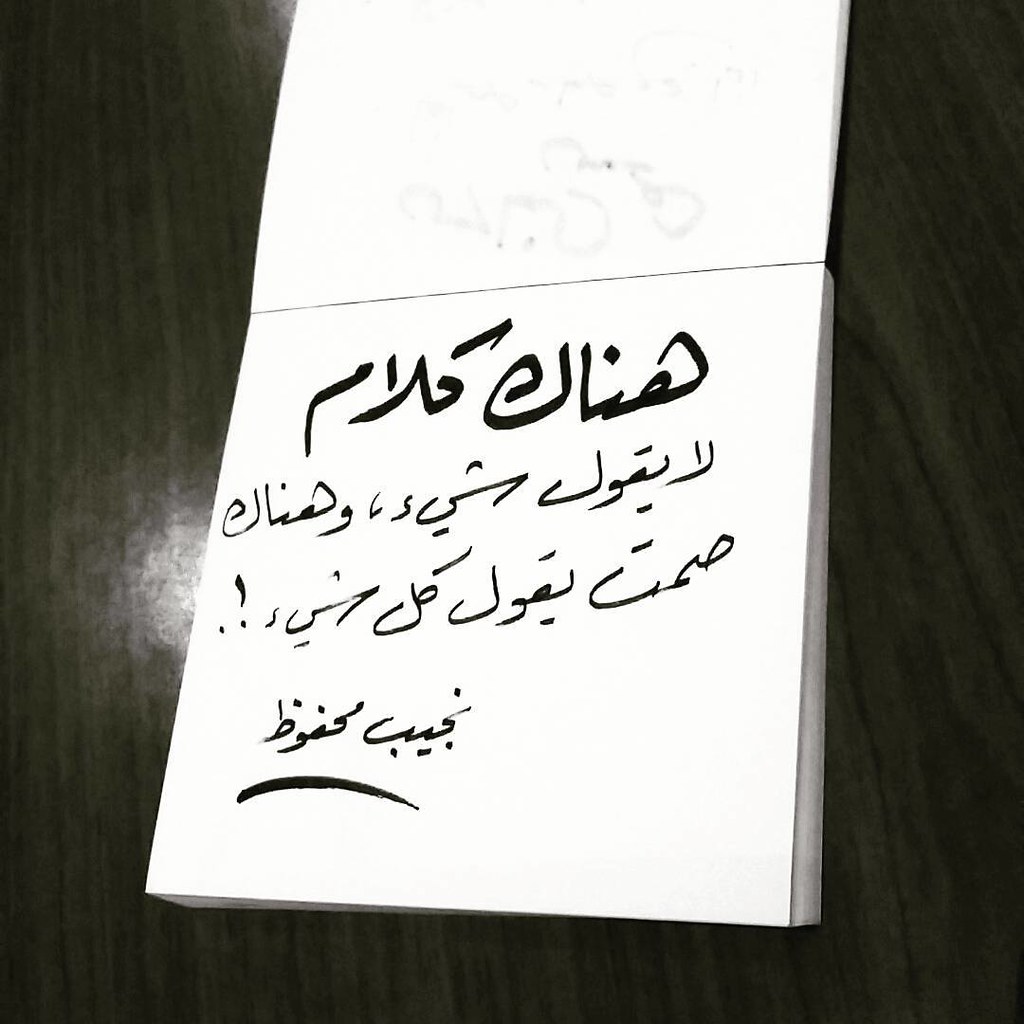 هناك كلام
لا يقول شيء، وهناك
صمت يقول كل شيء !.
نجيب محفوظ